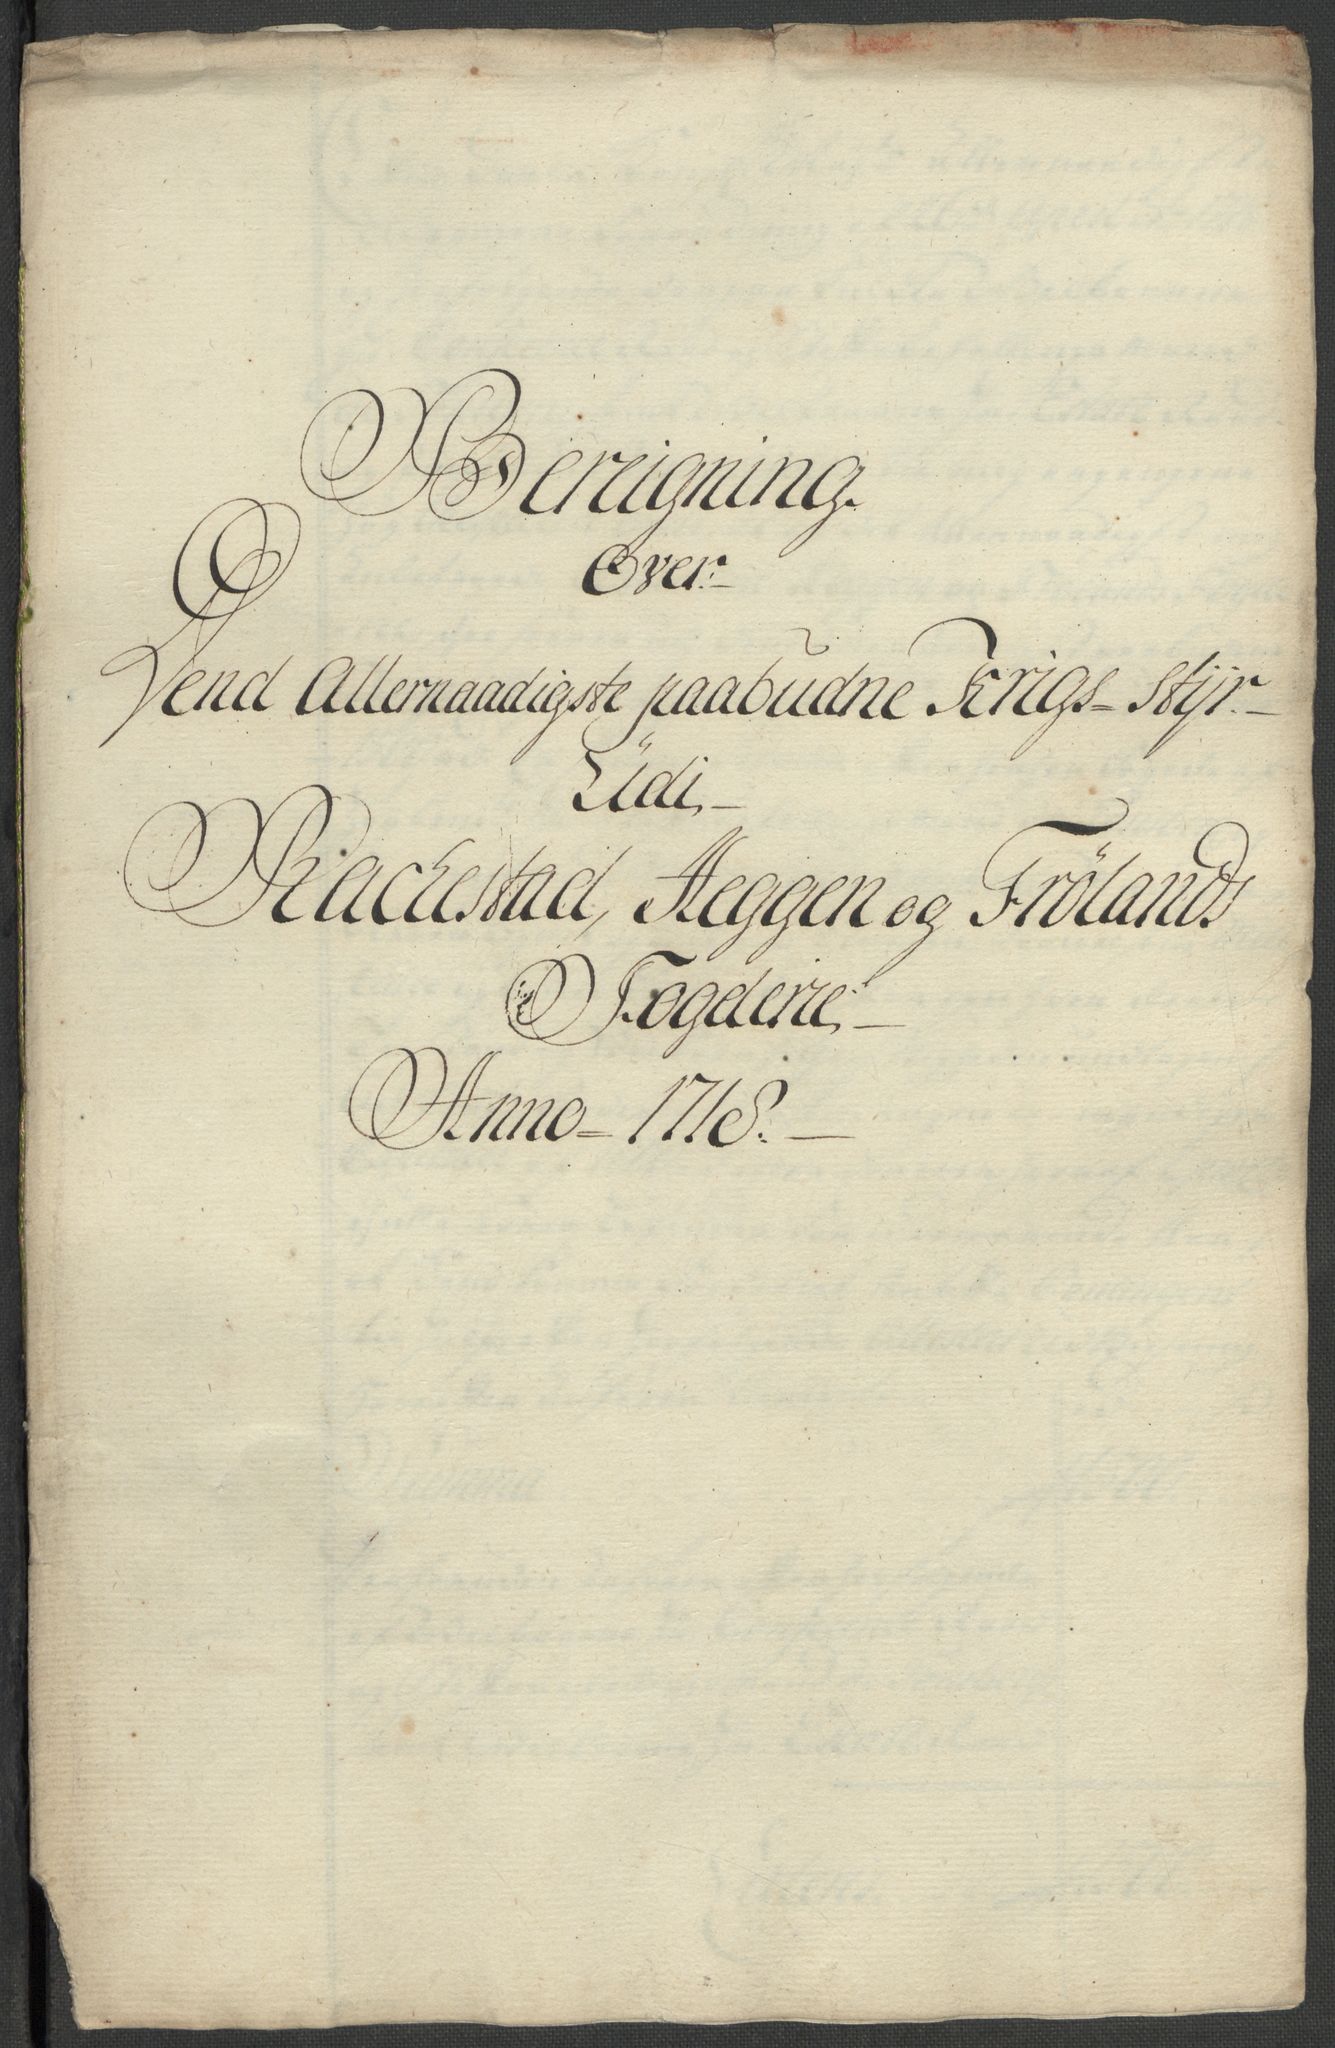 Bereigning.
Over
Dend Allernaadigste paabudne Krigs-Styr
Udi,
Rackestad, Heggen og Frölands
Fogderie,
Anno 1718.